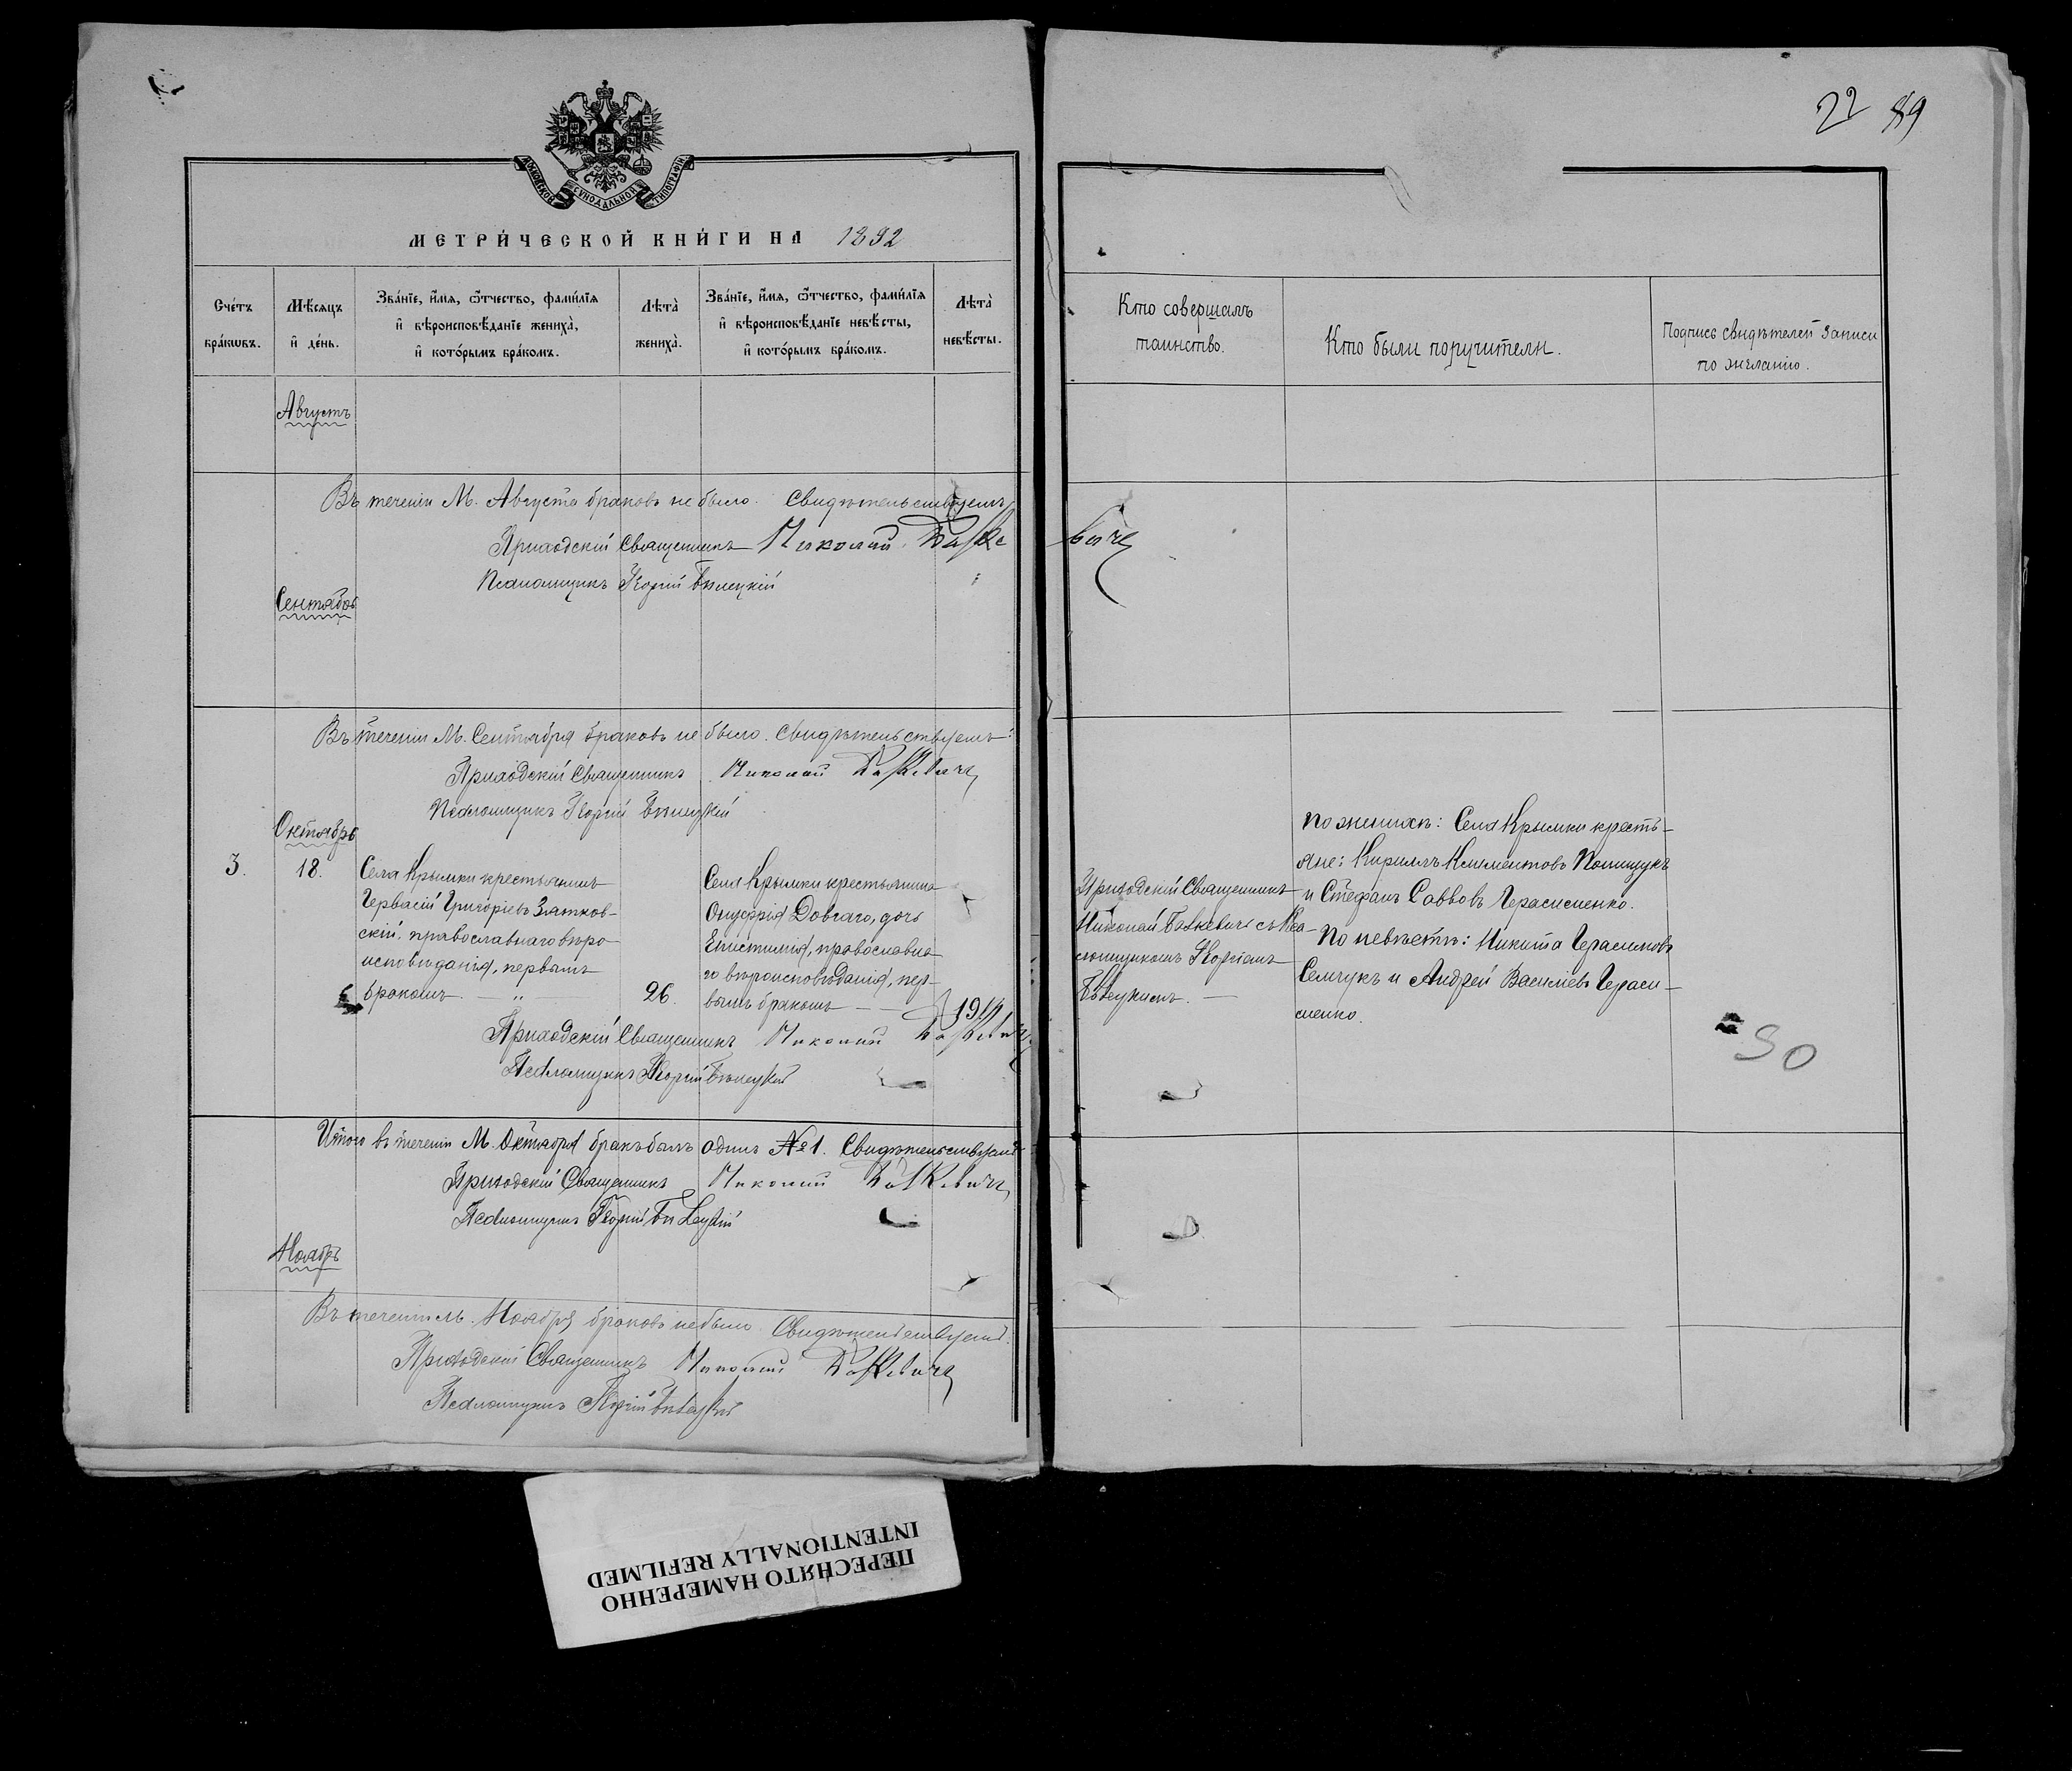 22 89
МОСКОВСКОЙ СУНОДАЛЬНОЙ ТИПОГРАФІИ
МЕТРИ́ЧЕСКОЙ КНИ́ГИ НА 1892
Сче́тъ бра́ковъ.
Мѣ́сяцъ и҆ де́нь.
Зва́нїе, и҆́мѧ, ѻ҆́тчество, фами́лїѧ
и҆ вѣроисповѣ́данїе жениха̀,
и҆ кото́рымъ бра́комъ.
Лѣта̀ жениха̀.
Зва́нїе, и҆́мѧ, ѻ҆́тчество, фами́лїѧ
и҆ вѣроисповѣ́данїе невѣ́сты,
и҆ кото́рымъ бра́комъ.
Лѣта̀ невѣ́сты.
Кто совершалъ
таинство.
Кто были поручители.
Подпись свидѣтелей записи
по желанію.
Августъ
Въ теченіи М. Августа браковъ не было. Свидѣтельствуемъ
Приходскій Священникъ Николай Баскевичъ
Псаломщикъ Георгій Бѣлецкій
Сентябрь
Въ теченіи М. Сентября браковъ не было. Свидѣтельствуемъ:
Приходскій Священникъ Николай Баскевичъ
Псаломщикъ Георгій Бѣлецкій
Октябрь
3.
18.
Села Крымки крестьянинъ
Гервасій Григоріевъ Зятков-
скій, православнаго вѣро-
исповѣданія, первымъ
бракомъ. — „ —
26.
Села Крымки крестьянина
Онуфрія Довгаго, дочь
Епистимія, православна-
го вѣроисповѣданія, пер-
вымъ бракомъ — —
19
Приходскій Священникъ
Николай Баскевичъ съ Пса-
ломщикомъ Георгіемъ
Бѣлецкимъ. —
По женихѣ: Села Крымки кресть-
яне: Кириллъ Климентовъ Полищукъ
и Стефанъ Саввовъ Герасименко.
По невѣстѣ: Никита Герасимовъ
Семчукъ и Андрей Василіевъ Гераси-
менко.
Приходскій Священникъ Николай Баскевичъ
Псаломщикъ Георгій Бѣлецкій
30
Итого въ теченіи М. Октября бракъ былъ одинъ №1. Свидѣтельствуемъ
Приходскій Священникъ Николай Баскевичъ
Псаломщикъ Георгій Бѣлецкій
Ноябрь
Въ теченіи М. Ноября браковъ не было. Свидѣтельствуемъ.
Приходскій Священникъ Николай Баскевичъ
Псаломщикъ Георгій Бѣлецкій
ПЕРЕСНЯТО НАМЕРЕННО
INTENTIONALLY REFILMED